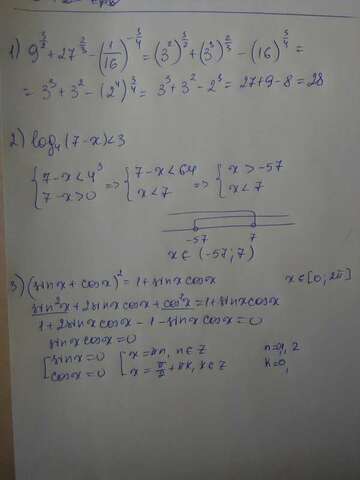 1) 9^(3/2) + 27^(2/3) - (1/16)^(-3/4) = (3²)^(3/2) + (3³)^(2/3) - (16)^(3/4) =
= 3³ + 3² - (2⁴)^(3/4) = 3³ + 3² - 2³ = 27+9-8 = 28
2) log₄(7-x)<3
{7-x<4³ => {7-x<64 => {x>-57
{7-x>0 {x<7 {x<7
-57 7
x∈(-57; 7)
3) (sinx + cosx)² = 1 + sinx cosx x∈[0; 2π]
sin²x + 2sinxcosx + cos²x = 1 + sinxcosx
1 + 2sinxcosx - 1 - sinxcosx = 0
sinxcosx = 0
[sinx = 0 [x = πn, n∈Z n=0, 2
[cosx = 0 [x = π/2 + πk, k∈Z k=0,